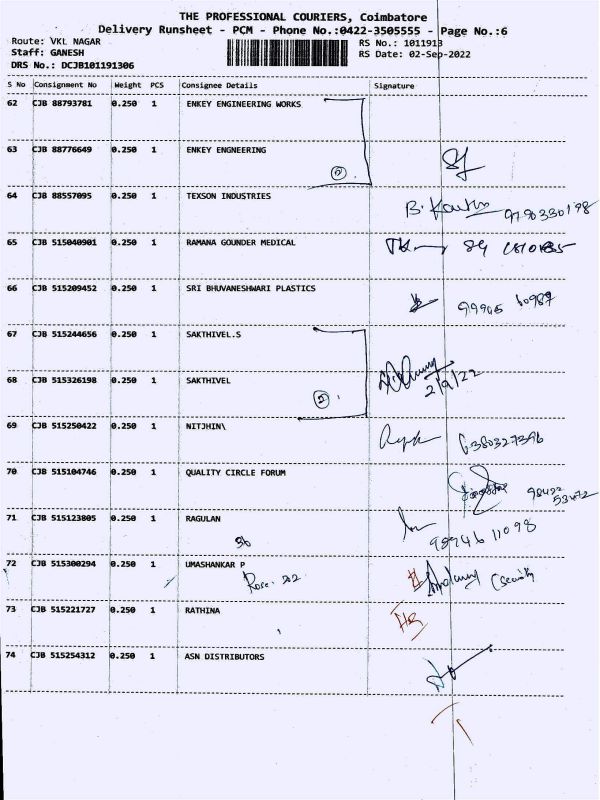 THE PROFESSIONAL COURIERS, Coimbatore
Delivery Runsheet - PCM - Phone No.:0422-3505555 - Page No.:6
Route: VKL NAGAR
Staff: GANESH
DRS No.: DCJB101191306
RS No.: 1011913
RS Date: 02-Sep-2022
S No Consignment No Weight PCS Consignee Details Signature
62 CJB 88793781 0.250 1 ENKEY ENGINEERING WORKS
63 CJB 88776649 0.250 1 ENKEY ENGNEERING
2
64 CJB 88557095 0.250 1 TEXSON INDUSTRIES
9790330198
65 CJB 515040901 0.250 1 RAMANA GOUNDER MEDICAL
66 CJB 515209452 0.250 1 SRI BHUVANESHWARI PLASTICS
67 CJB 515244656 0.250 1 SAKTHIVEL.S
68 CJB 515326198 0.250 1 SAKTHIVEL
2
2/9/22
69 CJB 515250422 0.250 1 NITJHIN\
6380327396
70 CJB 515104746 0.250 1 QUALITY CIRCLE FORUM
98422
53472
71 CJB 515123805 0.250 1 RAGULAN
72 CJB 515300294 0.250 1 UMASHANKAR P
73 CJB 515221727 0.250 1 RATHINA
74 CJB 515254312 0.250 1 ASN DISTRIBUTORS